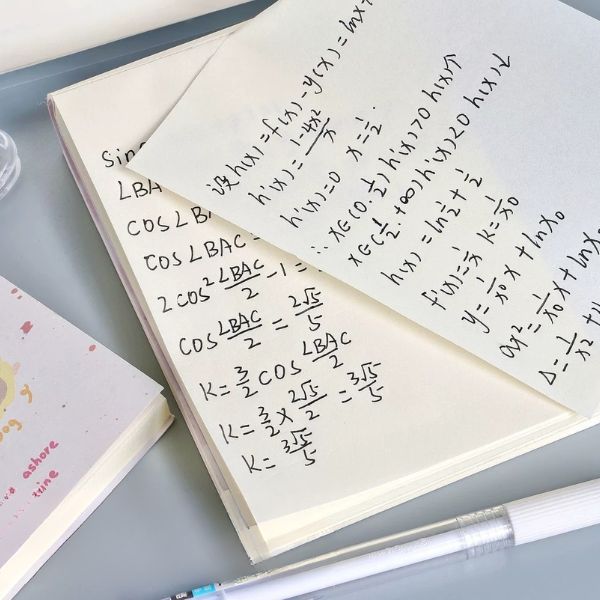 Sin
∠BA
COS∠BA
COS∠BAC=
2cos²∠BAC/2-1=
COS∠BAC/2=2√5/5
K=3/2cos∠BAC/2
K=3/2×2√5/2=3√5/5
K=3√5/5
设h(x)=f(x)-y(x)=lnx+
h'(x)=1-4x²/x
h'(x)=0 x=1/2.
∴x∈(0.1/2)h'(x)>0 h(x)↑
x∈(1/2.+∞)h'(x)<0 h(x)↓
h(x)=ln1/2+1/2
f'(x)=1/x K=1/x₀
y=1/x₀x+lnx₀
ax²=1/x₀x+lnx₀
Δ=1/x²+4
ashore